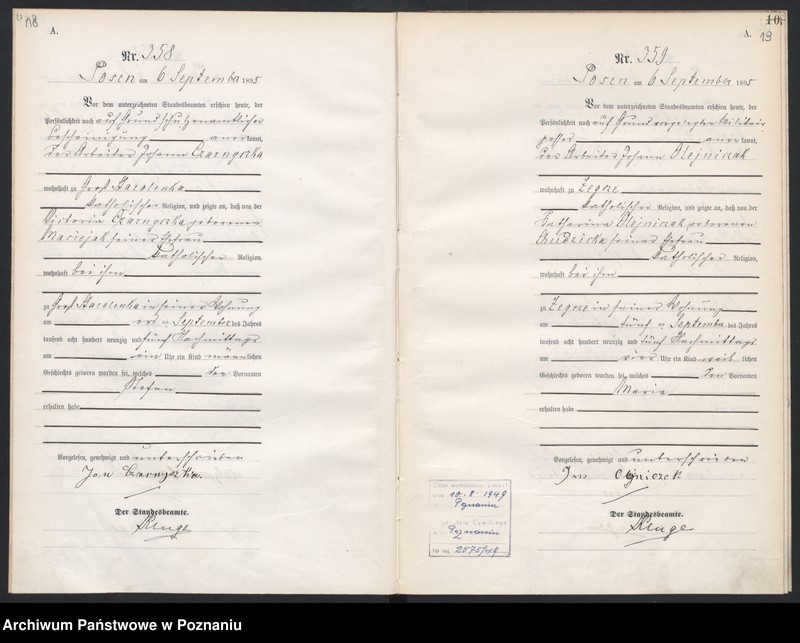 18
A.
Nr. 358
Posen am 6 September 1895
Vor dem unterzeichneten Standesbeamten erschien heute, der
Persönlichkeit nach auf Grund
Bescheinigung anerkannt,
der Arbeiter Johann Czarnyszka
wohnhaft zu Groß Starolenka
katholischer Religion, und zeigte an, daß von der
Viktoria Czarnyszka geborenen
Maciejak seiner Ehefrau
katholischer Religion,
wohnhaft bei ihm
zu Groß Starolenka in seiner Wohnung
am September des Jahres
tausend acht hundert neunzig und fünf Nachmittags
um ein Uhr ein Kind männlichen
Geschlechts geboren worden sei, welches den Vornamen
Stefan
erhalten habe
Vorgelesen, genehmigt und unterschrieben
Jan Czarnyszka.
Der Standesbeamte.
Kluge
10.
A. 19
Nr. 359
Posen am 6 September 1895
Vor dem unterzeichneten Standesbeamten erschien heute, der
Persönlichkeit nach auf Grund vorgelegten Militair
passes anerkannt,
der Arbeiter Johann Olejniczak
wohnhaft zu Zegrze
katholischer Religion, und zeigte an, daß von der
Katharina Olejniczak geborenen
Rudzicka seiner Ehefrau
katholischer Religion,
wohnhaft bei ihm
zu Zegrze in seiner Wohnung
am fünf September des Jahres
tausend acht hundert neunzig und fünf Nachmittags
um vier Uhr ein Kind weiblichen
Geschlechts geboren worden sei, welches den Vornamen
Maria
erhalten habe
Vorgelesen, genehmigt und unterschrieben
Der Standesbeamte.
Kluge
10.8.1949
Poznaniu
Stanu Cywilnego
Poznaniu
Nr rej. 2575/49
Archiwum Państwowe w Poznaniu